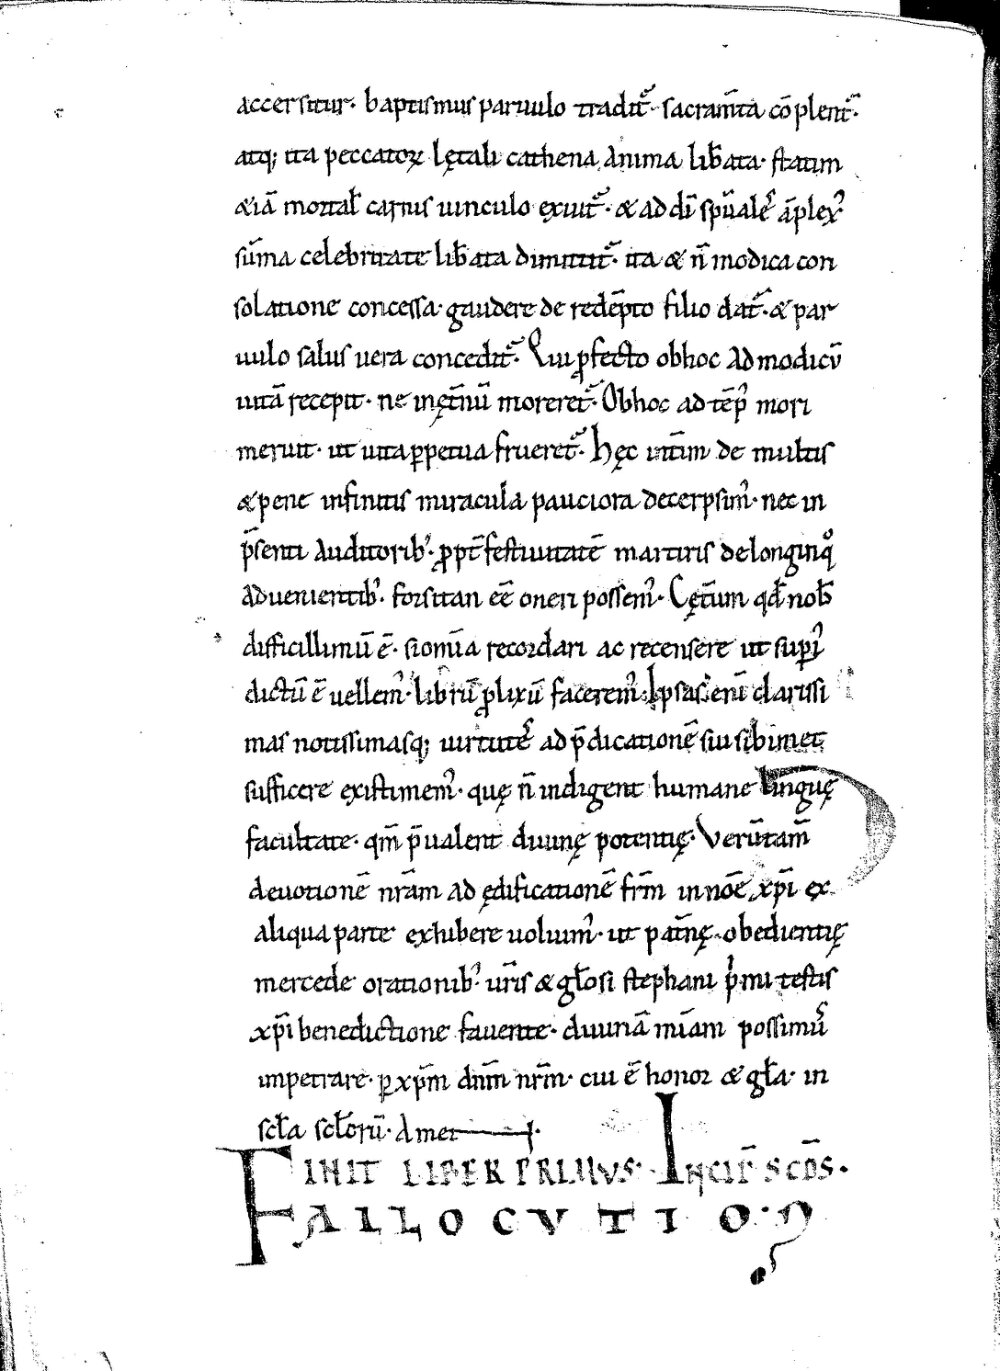 accersitur. baptismus paruulo tradit᷑. sacram̅ta co̅plent᷑.
atq; ita peccatoꝝ lętali cathena anima lib̅ata. statim
&ia̅ mortal̅ carnis uinculo exuit᷑. & ad di̅ sp̅uale̅ a̅plexꝰ
su̅ma celebritate lib̅ata dimittit᷑. ita & n̅ modica con
solatione concessa. gaudere de rede̅pto filio dat᷑. & par
uulo salus uera concedit᷑. Qui ꝓfecto obhoc ad modicu̅
uita̅ recepit. ne inęt̅nu̅ moreret᷑. Obhoc ad te̅pꝰ mori
meruit. ut uita ꝑpetua frueret᷑. Hęc int̅im de multis
& pene infinitis miracula pauciora decerpsimꝰ. nec in
p̅senti auditoribꝰ. ꝓpt̅ festiuitate̅ martiris delonginqͦ
aduenientibꝰ. forsitan ee̅ oneri possemꝰ. Cęt̅um qd̅ nob̅
difficillimu̅ e̅. siom̅ia recordari ac recensere ut supiꝰ
dictu̅ e̅ uellemꝰ. libru̅ ꝓlixu̅ faceremꝰ. Ipsas eni̅ clarissi
mas notissimasq; uirtute̅s ad p̅dicatione̅ sui sibimet
sufficere existimemꝰ. quę n̅ indigent humane linguę
facultate. qm̅ p̅ualent diuinę potentię. Veru̅tam̅
deuotione̅ nr̅am ad ędificatione̅ frm̅ in no̅e xp̅i ex
aliqua parte exhibere uoluimꝰ. ut pat̅nę obedientię
mercede orationibꝰ ur̅is & gl̅osi stephani pⁱmi testis
xp̅i benedictione fauente. diuina̅ mi̅am possimꝰ
impetrare. ꝑ xp̅m dn̅m nr̅m. cui e̅ honor & gl̅a. in
scl̅a scl̅oru̅. Amen.
FINIT LIBER PRIMUS. Incip̅ sc̅ds.
ALLOCUTIO.